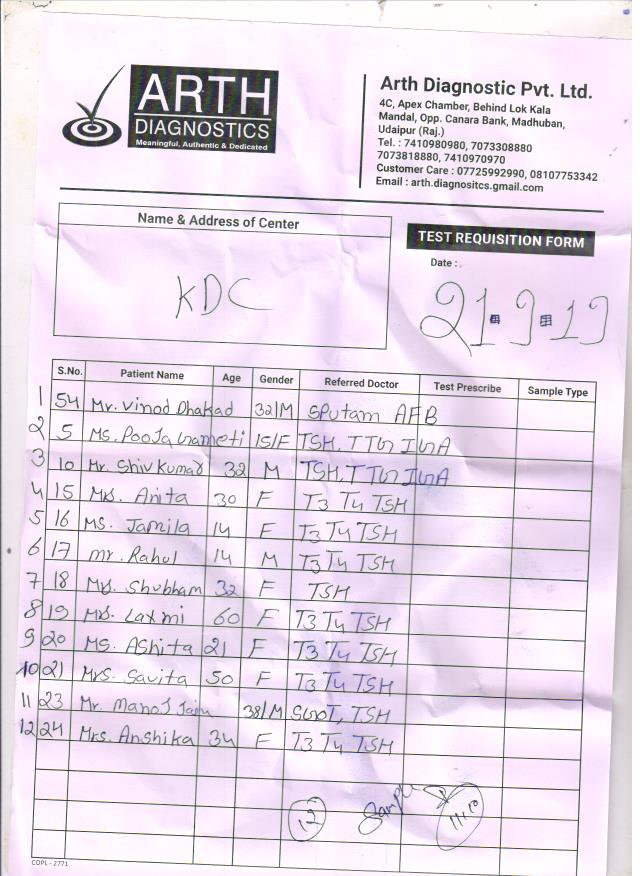 ARTH
DIAGNOSTICS
Meaningful, Authentic & Dedicated
Arth Diagnostic Pvt. Ltd.
4C, Apex Chamber, Behind Lok Kala
Mandal, Opp. Canara Bank, Madhuban,
Udaipur (Raj.)
Tel. : 7410980980, 7073308880
7073818880, 7410970970
Customer Care : 07725992990, 08107753342
Email : arth.diagnositcs.gmail.com
Name & Address of Center
KDC
TEST REQUISITION FORM
Date :
21.9.19
S.No. Patient Name Age Gender Referred Doctor Test Prescribe Sample Type
1 54 Mr. Vinod Dhakad 32/M Sputam AFB
2 5 Ms. Pooja Gameti 15/F TSH, TTG IGA
3 10 Mr. Shiv Kumar 32 M TSH, TTG IGA
4 15 Mrs. Anita 30 F T3 T4 TSH
5 16 Ms. Jamila 14 F T3 T4 TSH
6 17 mr. Rahul 14 M T3 T4 TSH
7 18 Mrs. Shubham 32 F TSH
8 19 Mrs. Laxmi 60 F T3 T4 TSH
9 20 Ms. Ashita 21 F T3 T4 TSH
10 21 Mrs. Savita 50 F T3 T4 TSH
11 23 Mr. Manoj Jain 38/M SGOT, TSH
12 24 Mrs. Anshika 34 F T3 T4 TSH
12 Sample 11:10
COPL - 2771